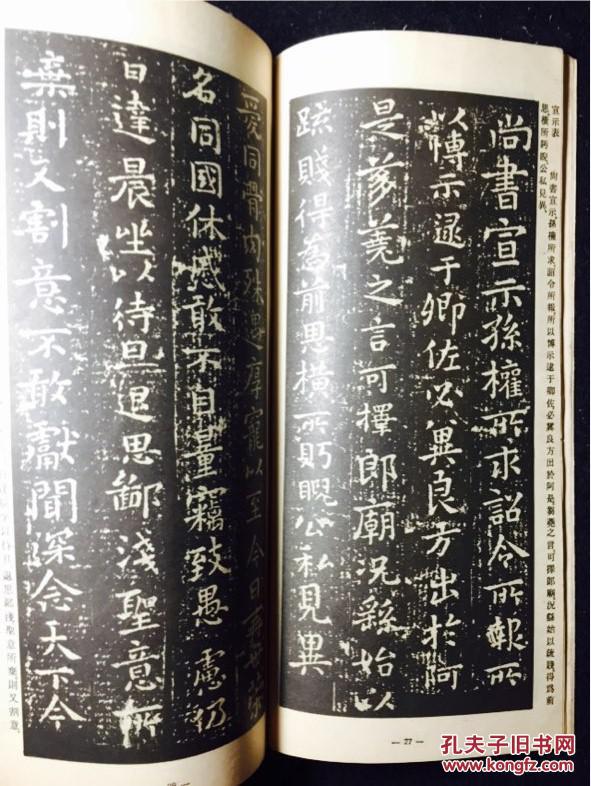 宣示表　尚書宣示孫權所求詔令所報所以博示逮于卿佐必冀良方出於阿是芻蕘之言可擇郎廟況繇始以疏賤得爲前
恩橫所眄睨公私見異
尚書宣示孫權所求詔令所報所
以博示逮于卿佐必冀良方出於阿
是芻蕘之言可擇郎廟況繇始以
疏賤得爲前恩橫所眄睨公私見異
— 27 —
愛同骨肉殊遇厚寵以至今日再世榮
名同國休慼敢不自量竊致愚慮仍
日達晨坐以待旦退思鄙淺聖意所
棄則又割意不敢獻聞深念天下今
退思鄙淺聖意所棄則又割意
孔夫子旧书网
www.kongfz.com